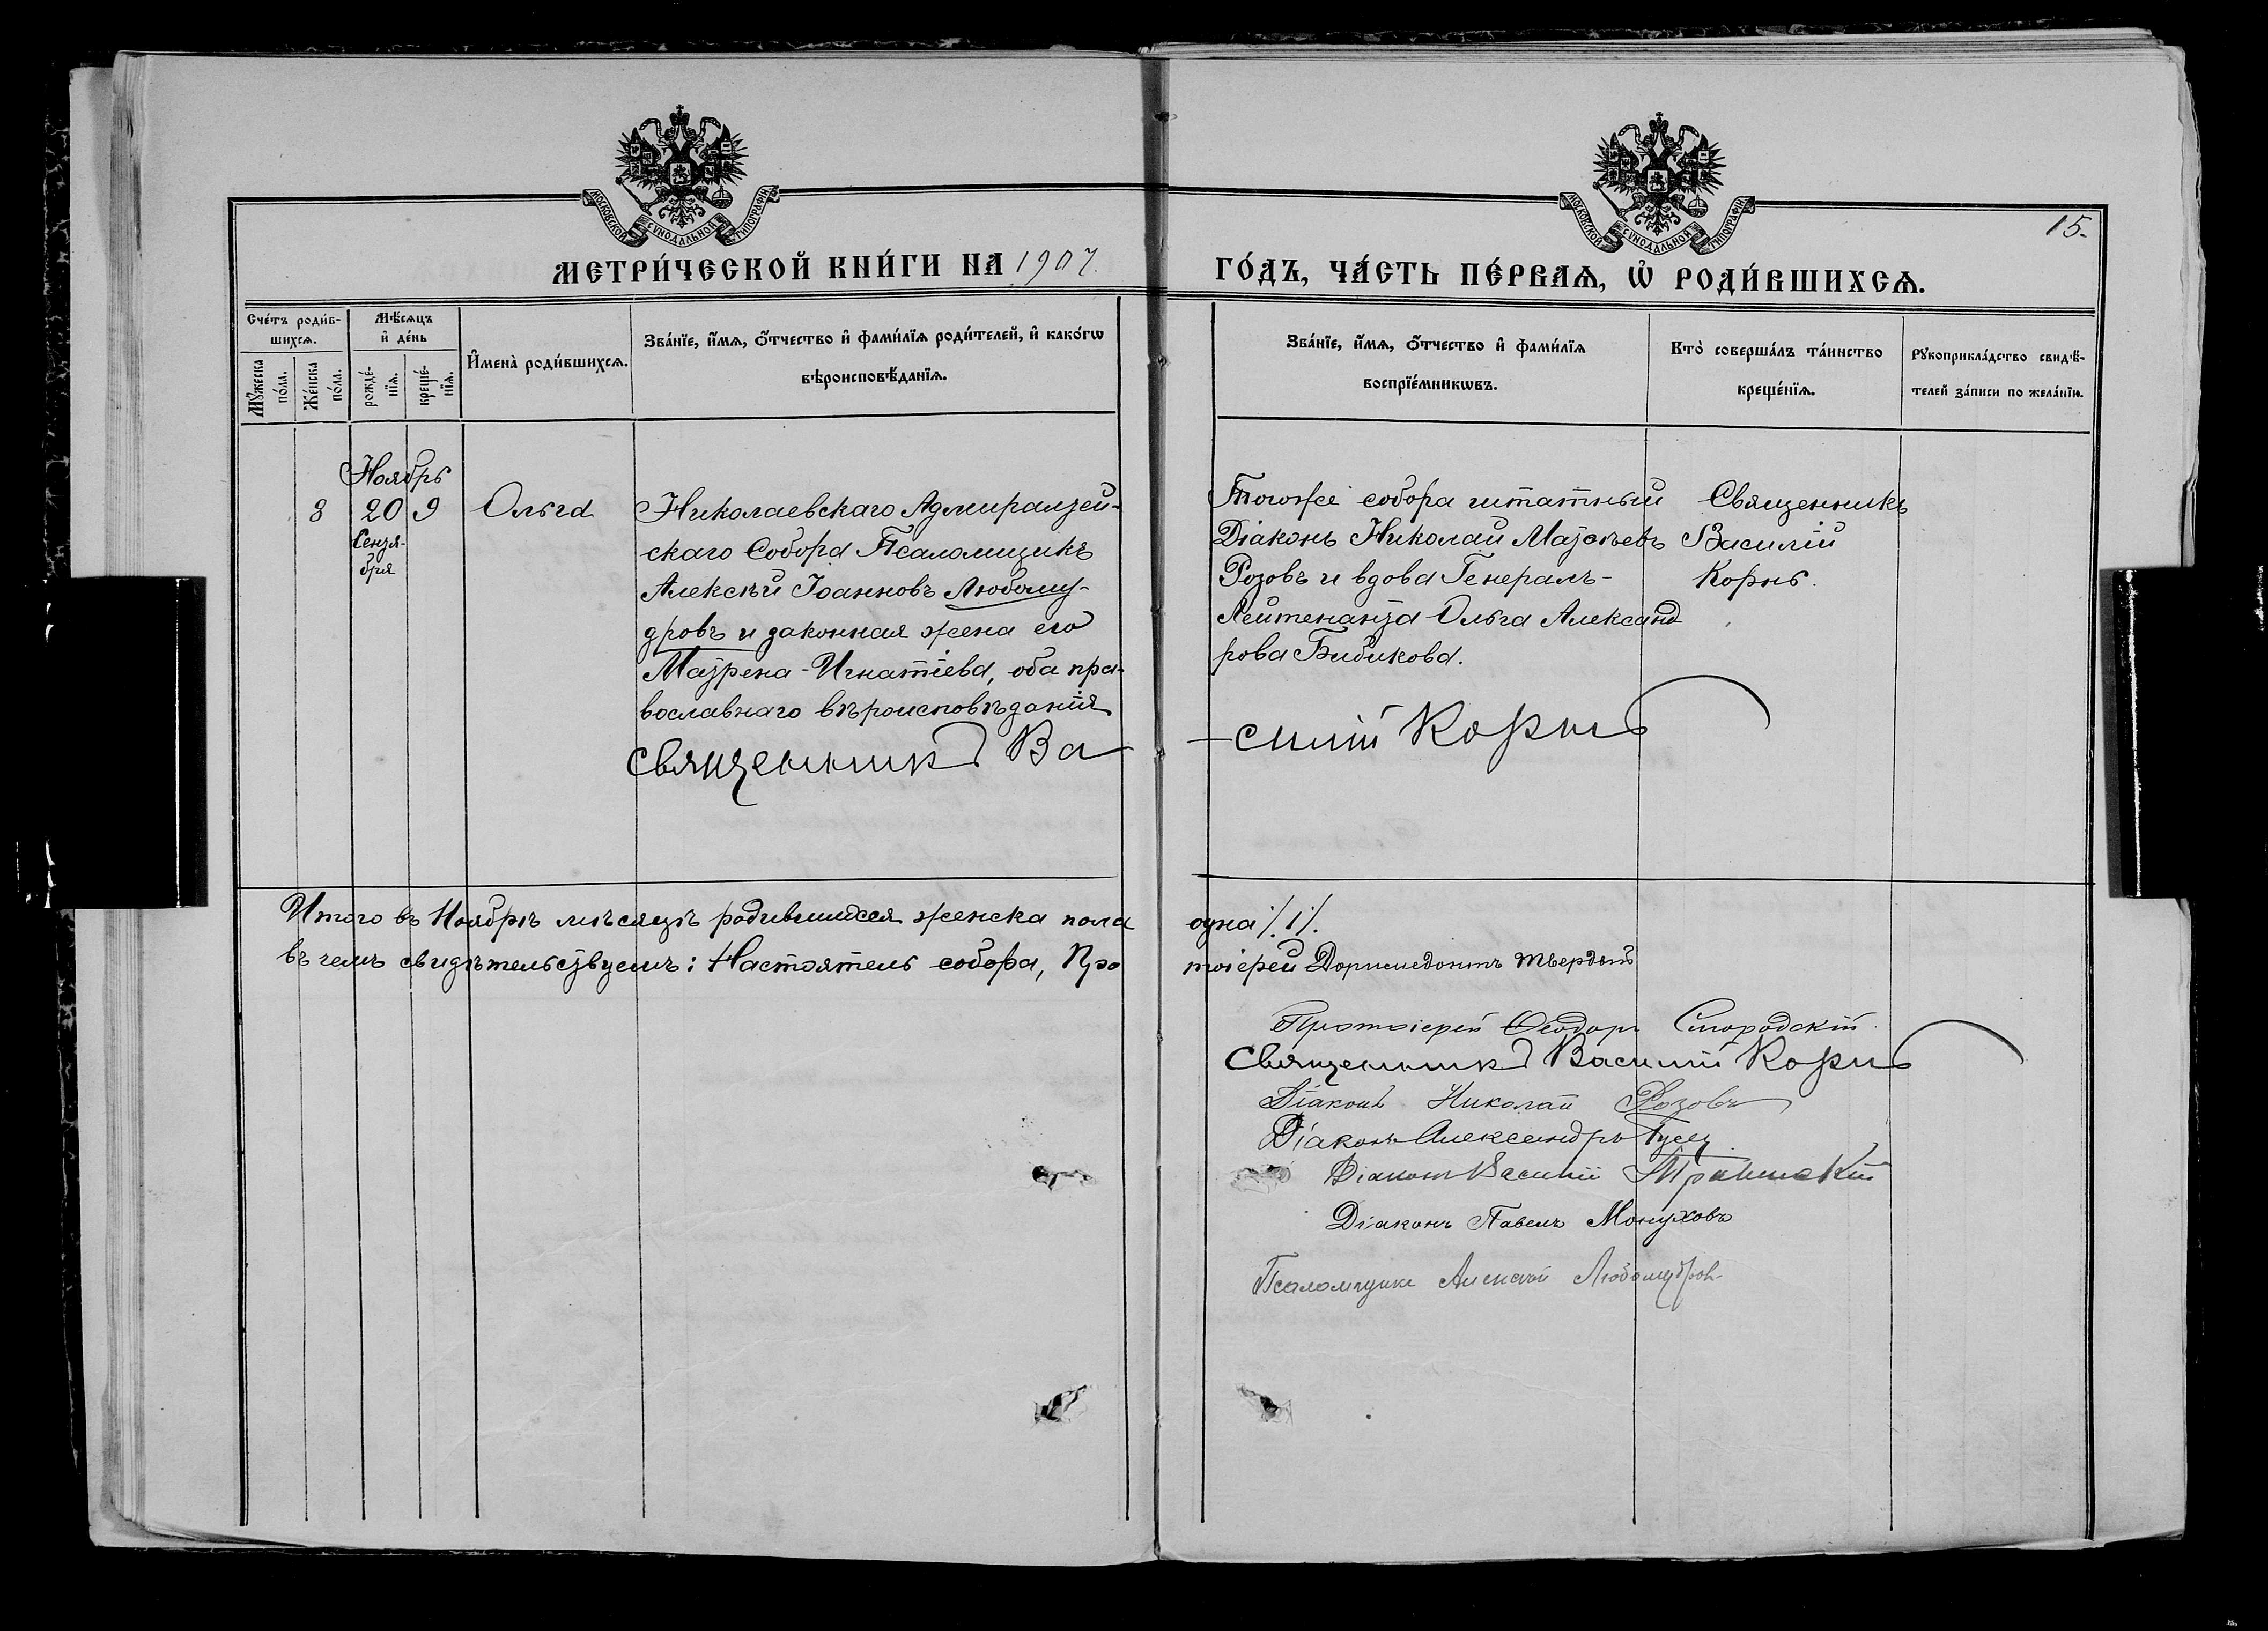 МОСКОВСКОЙ СѴНОДАЛЬНОЙ ТИПОГРАФІИ
МОСКОВСКОЙ СѴНОДАЛЬНОЙ ТИПОГРАФІИ
15.
МЕТРИ́ЧЕСКОЙ КНИ́ГИ НА 1907.
ГО́ДЪ, ЧА́СТЬ ПЕ́РВАѦ, Ѡ҆ РОДИ́ВШИХСѦ.
Сче́тъ роди́в-
шихсѧ.
Мꙋ́жеска
по́ла.
Же́нска
по́ла.
Мѣ́сѧцъ
и҆ де́нь
рожде́-
нїѧ.
креще́-
нїѧ.
И҆мена̀ роди́вшихсѧ.
Зва́нїе, и҆́мѧ, ѻ҆́тчество и҆ фами́лїѧ роди́телей, и҆ како́гѡ
вѣроисповѣ́данїѧ.
Зва́нїе, и҆́мѧ, ѻ҆́тчество и҆ фами́лїѧ
воспрїе́мникѡвъ.
Кто̀ соверша́лъ та́инство
креще́нїѧ.
Рꙋкоприкла́дство свидѣ́-
телей за́писи по жела́нїю.
Ноябрь
8 20 9 Ольга
Сентя-
бря
Николаевскаго Адмиралтей-
скаго Собора Псаломщикъ
Алексѣй Іоанновъ Любому-
дровъ и законная жена его
Матрена Игнатіева, оба пра-
вославнаго вѣроисповѣданія
Священникъ Ва-
Тогоже собора штатный
Діаконъ Николай Матѳѣевъ
Розовъ и вдова Генералъ-
Лейтенанта Ольга Александ
рова Бибикова.
-силій Корнь
Священникъ
Василій
Корнь.
Итого въ Ноябрѣ мѣсяцѣ родившихся женска пола одна /.1/.
въ чемъ свидѣтельствуемъ: Настоятель собора, Про
тоіерей Доримедонтъ Твердый
Протоіерей Ѳеодоръ
Священникъ Василій Корнь
Діаконъ Николай Розовъ
Діаконъ Александръ
Діаконъ Василій
Діаконъ Павелъ Монуховъ
Псаломщикъ Алексѣй Любомудровъ